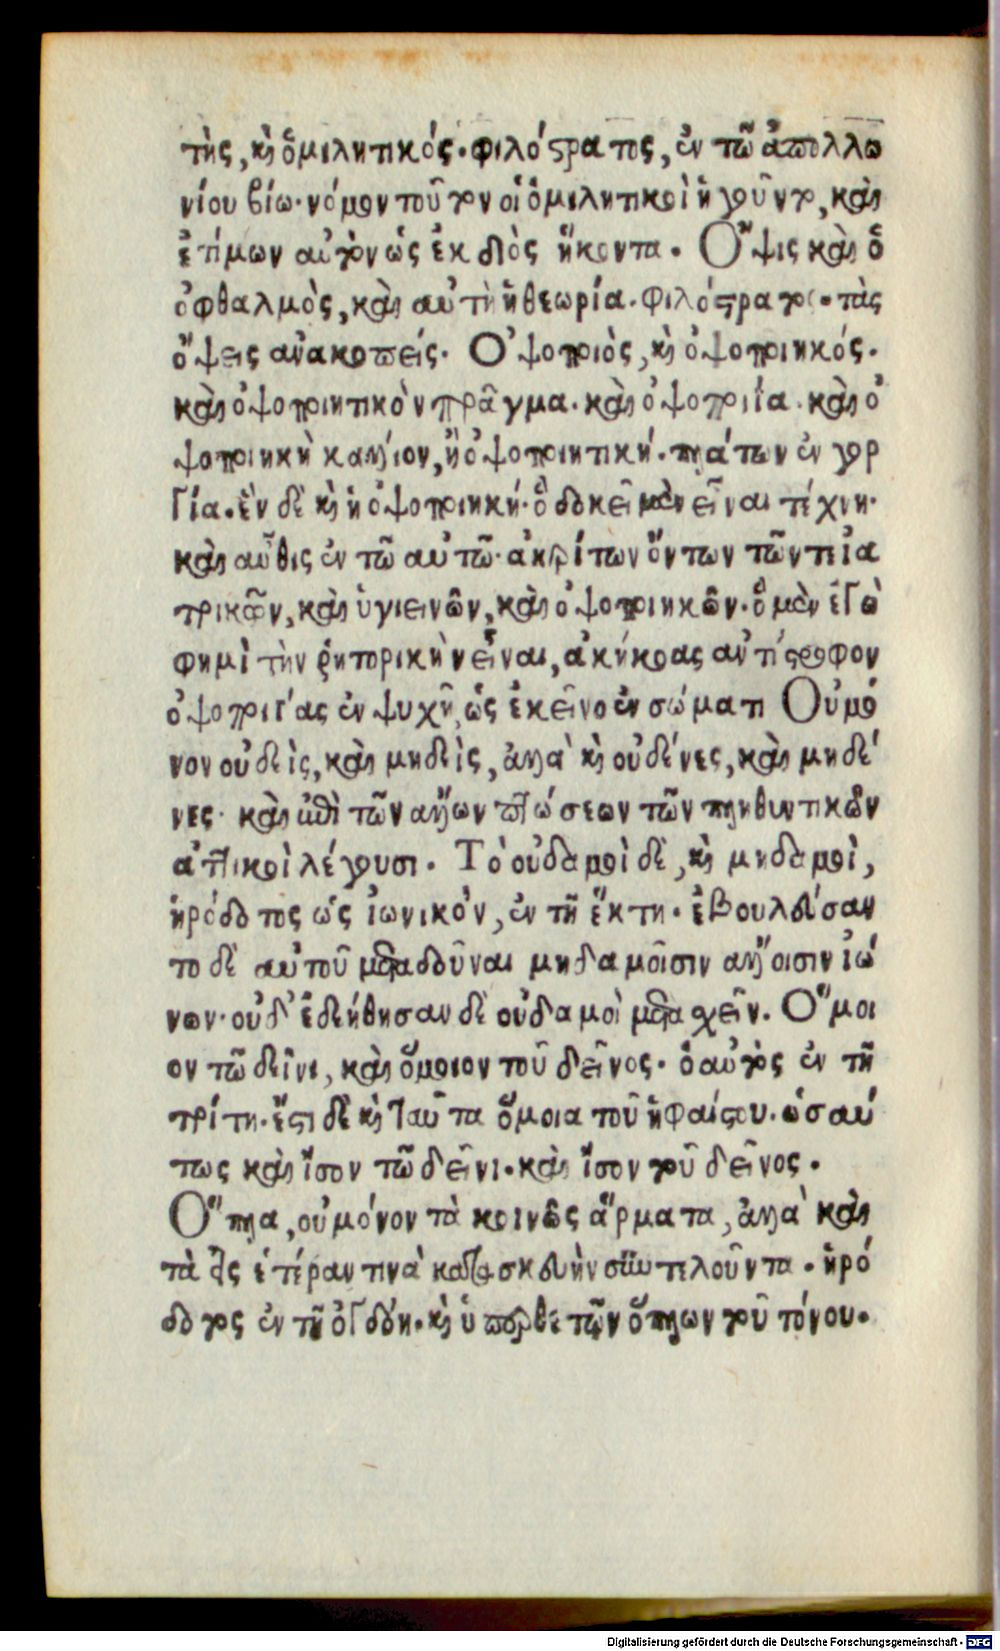 τὴς, κὶ ὁμιλητικός. φιλόστρατος, ἐν τῶ ἀπολλω
νίου βίω. νόμον τοῦτον οἱ ὁμιλητικοὶ ἡγοῦντο, καὶ
ἐτίμων αὐτὸν ὡς ἐκ διὸς ἥκοντα. Ὄψις καὶ ὁ
ὀφθαλμὸς, καὶ αὐτὴ ἡ θεωρία. φιλόστρατος. τὰς
ὄψεις ἀνακοπείς. Ὀψοποιὸς, κὶ ὀψοποιηκός.
καὶ ὀψοποιητικὸν πρᾶγμα. καὶ ὀψοποιία. καὶ ὀ
ψοποιηκὴ κάλλιον, ἢ ὀψοποιητική. πλάτων ἐν γορ
γία. ἓν δὲ κὶ ἡ ὀψοποιηκή. ὃ δοκεῖ μὲν εἶναι τέχνη.
καὶ αὖθις ἐν τῶ αὐτῶ. ἀκρίτων ὄντων τῶν τε ἰα
τρικῶν, καὶ ὑγιεινῶν, καὶ ὀψοποιηκῶν. ὃ μὲν ἐγὼ
φημὶ τὴν ῥητορικὴν εἶναι, ἀκήκοας ἀντίστροφον
ὀψοποιίας ἐν ψυχῆ, ὡς ἐκεῖνο ἐν σώματι Οὐ μό
νον οὐδεὶς, καὶ μηδεὶς, ἀλλὰ κὶ οὐδένες, καὶ μηδέ
νες. καὶ ἐπὶ τῶν ἄλλων πτώσεων τῶν πληθυντικῶν
ἀττικοὶ λέγουσι. Τὸ οὐδαμοὶ δὲ, κὶ μηδαμοὶ,
ἡρόδοτος ὡς ἰωνικὸν, ἐν τῆ ἕκτη. ἐβουλεύσαν
το δὲ αὐτοῦ μεταδοῦναι μηδαμοῖσιν ἄλλοισιν ἰώ
νων. οὐδ' ἐδεήθησαν δὲ οὐδαμοὶ μετασχεῖν. Ὅμοι
ον τῶ δεῖνι, καὶ ὅμοιον τοῦ δεῖνος. ὁ αὐτὸς ἐν τῆ
τρίτη. ἔστι δὲ κὶ ταῦτα ὅμοια τοῦ ἡφαίστου. ὡσαύ
τως καὶ ἴσον τῶ δεῖνι. καὶ ἴσον τοῦ δεῖνος.
Ὅπλα, οὐ μόνον τὰ κοινῶς ἄρματα, ἀλλὰ καὶ
τὰ εἰς ἑτέραν τινὰ κατασκευὴν συντελοῦντα. ἡρό
δοτος ἐν τῆ ὀγδόη. κὶ ὑπὸ τῶν ὅπλων τοῦ τόνου.
Digitalisierung gefördert durch die Deutsche Forschungsgemeinschaft - DFG